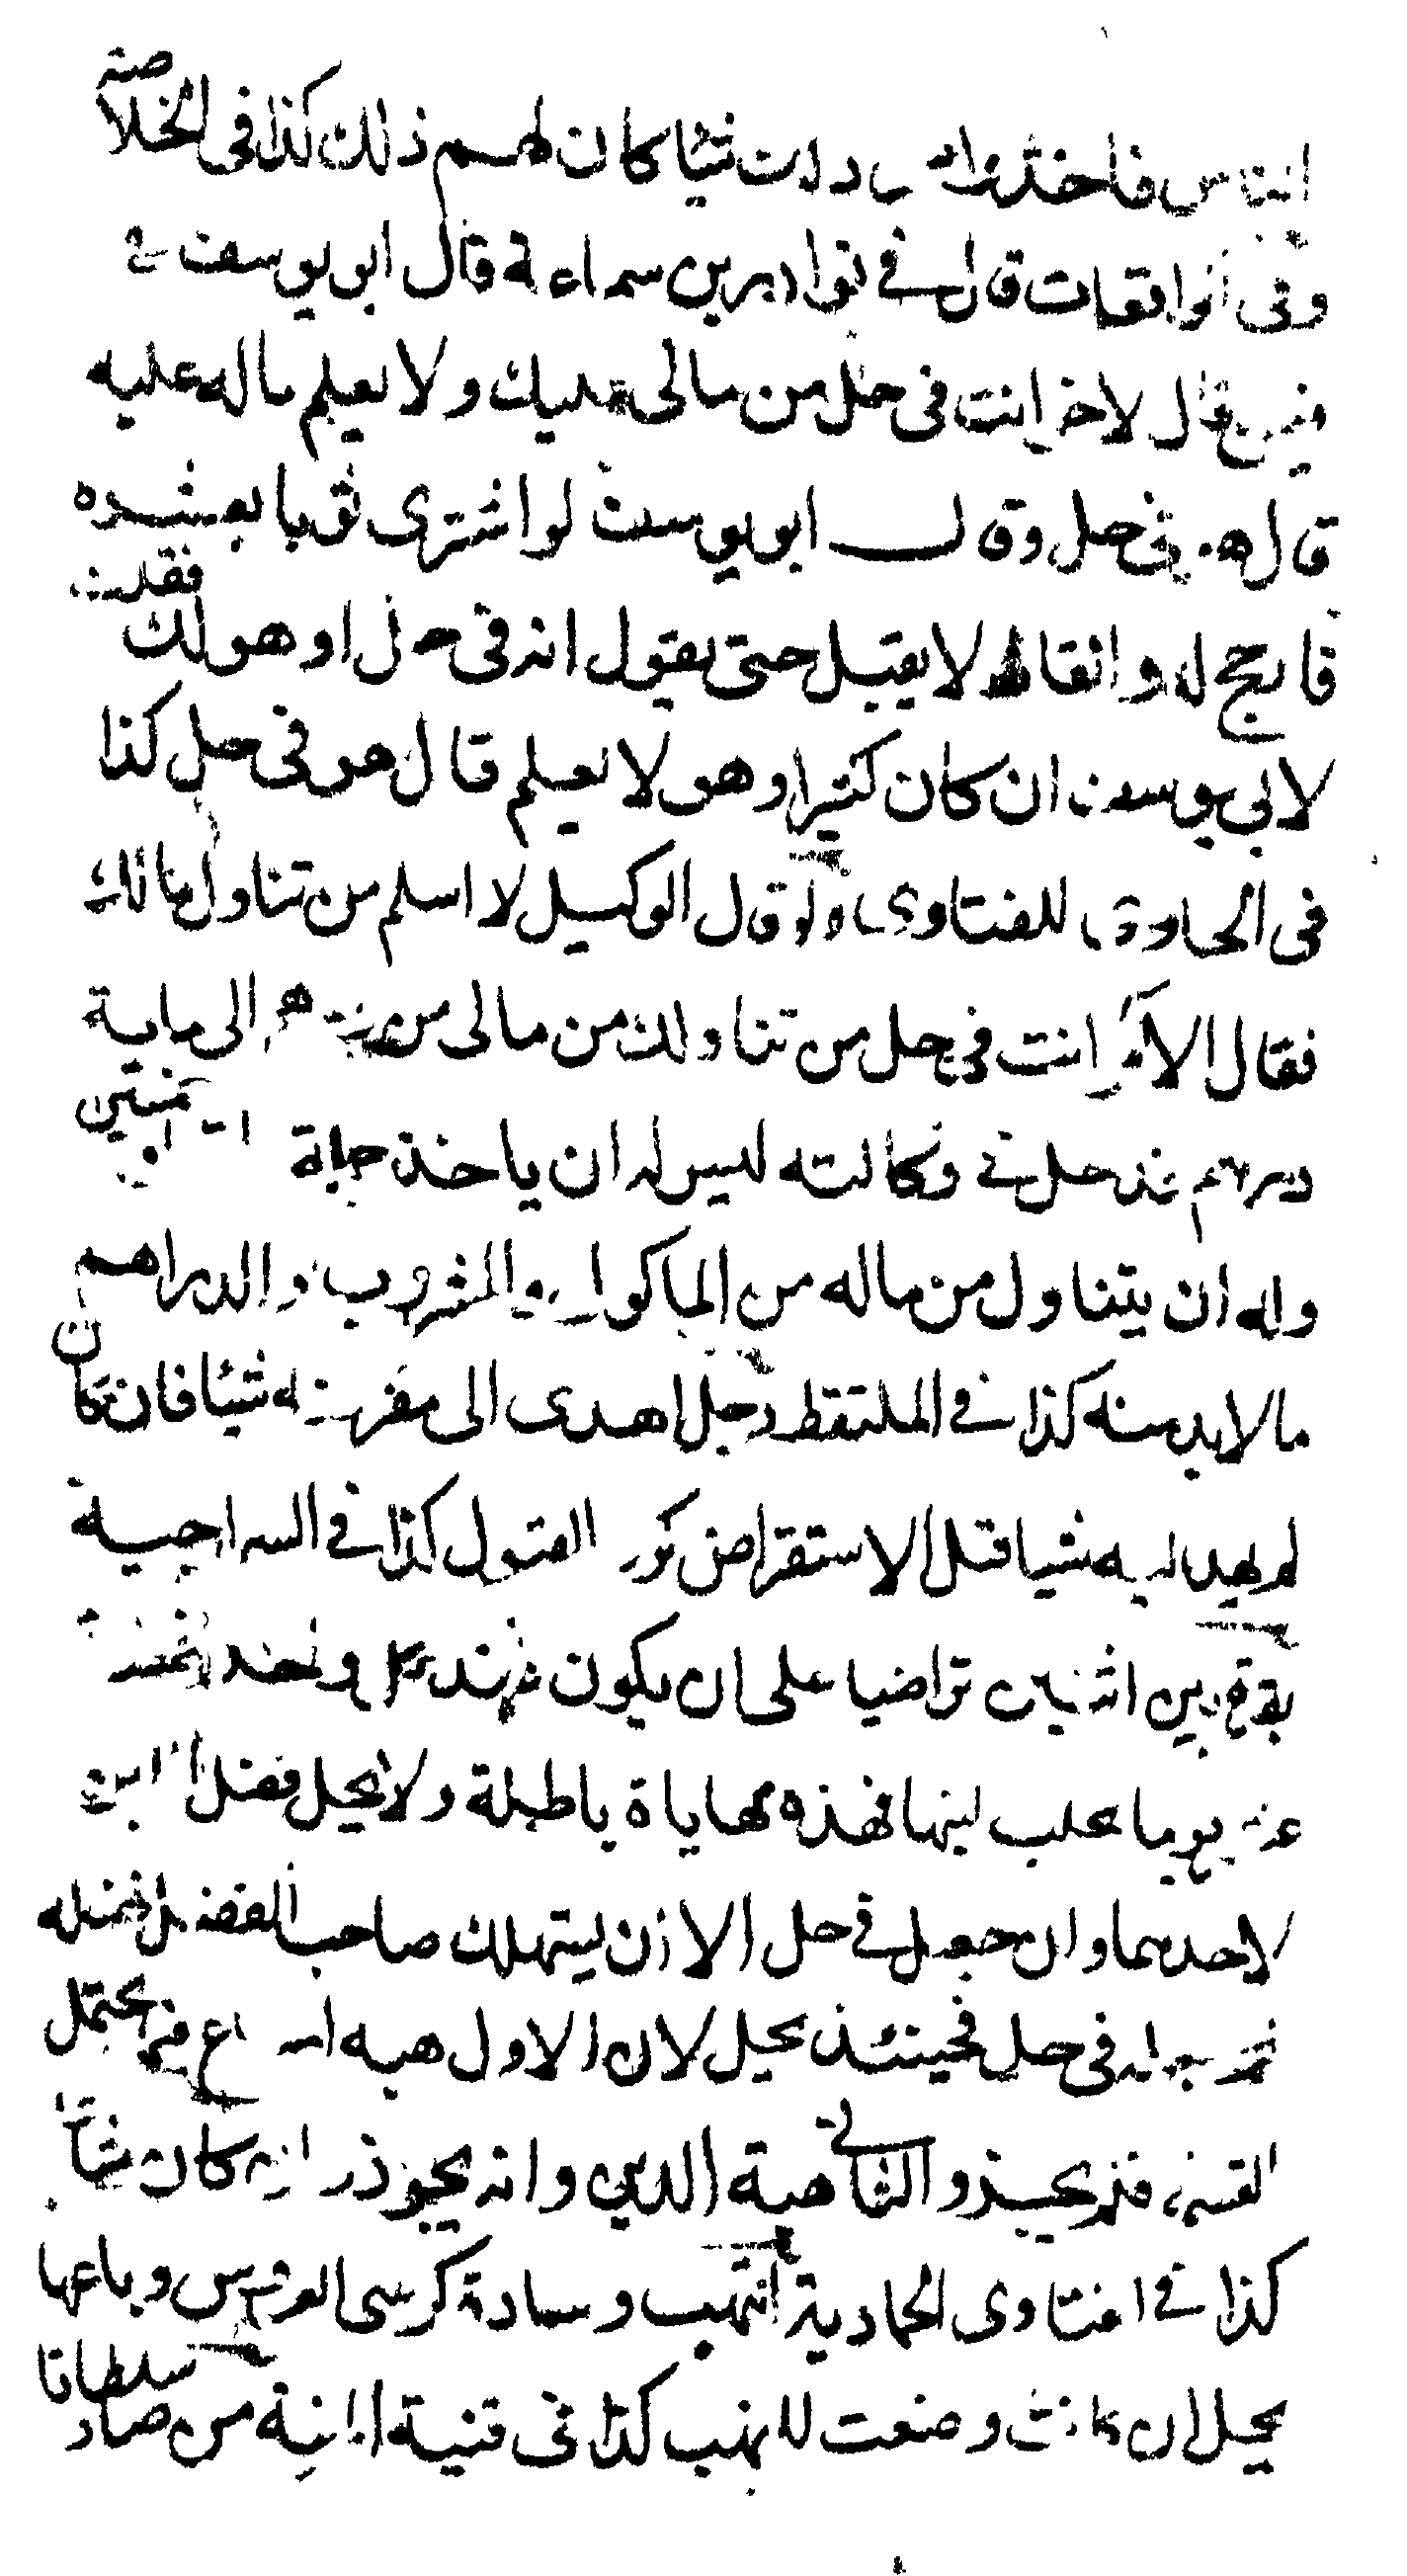 الناس فاخذ من ذلك شيئا كان لهم ذلك كذا في الخلاصة
وفي الواقعات قال في نوادر بن سماعة قال ابو يوسف في
قال لاخر انت في حل من مالي عليك ولا يعلم ماله عليه
قال هو في حل وقال ابو يوسف لو اشترى ثوبا بعشره
له وان قال لا يقبل حتى يقول انه في حل او هو لك فقلت
لابي يوسف ان كان كثيرا وهو لا يعلم قال هو في حل كذا
في الحاوي للفتاوى ولو قال الوكيل لا اسلم من تناول مالك
فقال الآمر انت في حل من تناولك من مالي من درهم الى ماية
درهم فدخل في وكالته ليس له ان ياخذ جملة
وله ان يتناول من ماله من الماكول والمشروب والدراهم
مالا بد منه كذا في الملتقط رجل اهدى الى مقرضه شيئا فان كان
لم يهد اليه شيا قبل الاستقراض كره القبول كذا في السراجية
بقرة بين اثنين تراضيا على ان يكون عند كل واحد خمسة
عشر يوما يحلب لبنها فهذه مهاياة باطلة ولا يحل فضل اللبن
لاحدهما وان جعل في حل الا ان يستهلك صاحب الفضل فضله
ثم جعله في حل فحينئذ يحل لان الاول هبة المشاع فيما يحتمل
القسمة فلم يجز والثاني هبة الدين وانه يجوز وان كان مشاعا
كذا في الفتاوى الحمادية انتهب وسادة كرسي العروس وباعها
يحل ان كانت وضعت للنهب كذا في قنية المنية من صار سلطانا